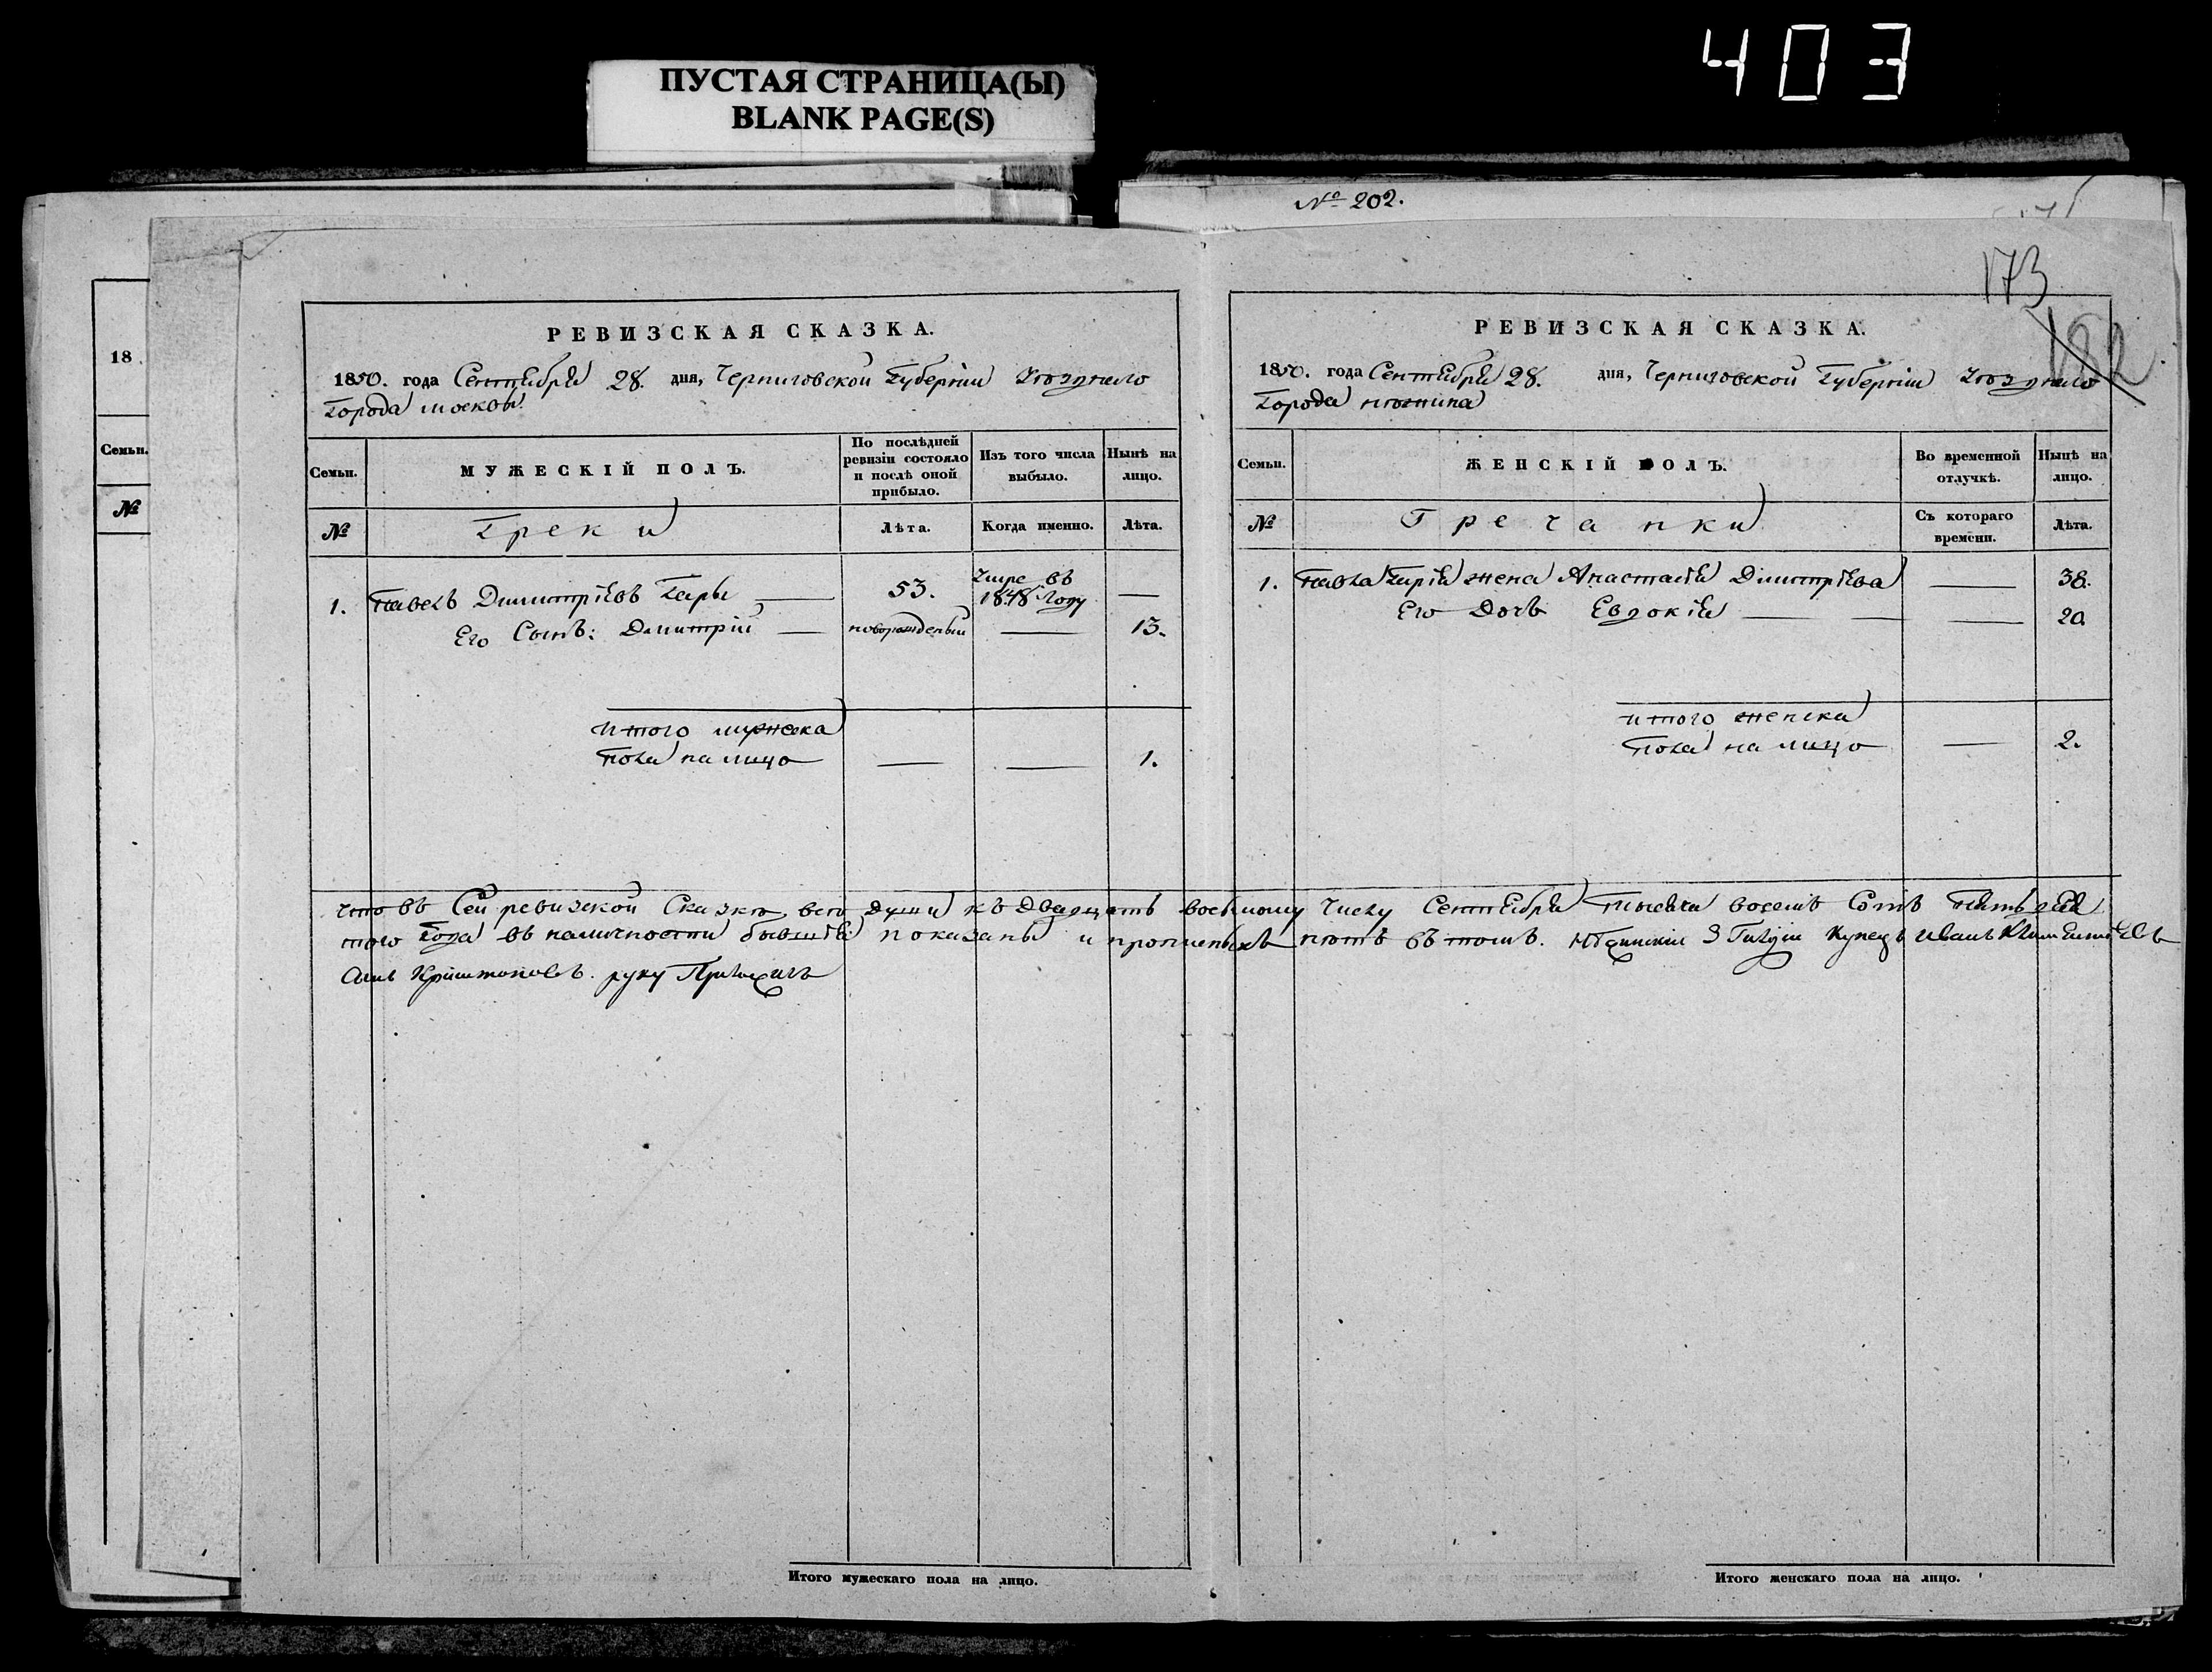 403
ПУСТАЯ СТРАНИЦА(Ы)
BLANK PAGE(S)
№ 202.
173
182
18
Семьи.
№
РЕВИЗСКАЯ СКАЗКА.
1850. года Сентября 28. дня, Черниговской Губернiи Уезднаго
Города
Семьи.
МУЖЕСКIЙ ПОЛЪ.
По послѣдней ревизiи состояло и послѣ оной прибыло.
Изъ того числа выбыло.
Нынѣ на лицо.
№
Греки
Лѣта.
Когда именно.
Лѣта.
1. Павелъ Димитрiевъ Гары — 53. Умре въ 1848 Году —
Его Сынъ: Дмитрiй — новорожденый — 13.
Итого мужеска
Пола на лицо — — 1.
РЕВИЗСКАЯ СКАЗКА.
1850. года Сентября 28. дня, Черниговской Губернiи Уезднаго
Города Нѣжина
Семьи.
ЖЕНСКIЙ ПОЛЪ.
Во временной отлучкѣ.
Нынѣ на лицо.
№
Гречанки
Съ котораго времени.
Лѣта.
1. Павла Гарiя жена Анастасiя Димитрiева — 38.
Его Дочь Евдокiя — — — 20.
Итого женска
Пола на лицо — 2.
Что въ Сей ревизской Сказкѣ всѣ Души къ Двадцать восьмому Числу Сентября Тысяча восемь Сотъ Пятьдеся
того Года въ наличности бывшiя показаны и прописныхъ нѣтъ въ томъ. Нѣжинскiй 3 Гилдiи Купецъ Иванъ
Сынъ руку Приложилъ
Итого мужескаго пола на лицо.
Итого женскаго пола на лицо.